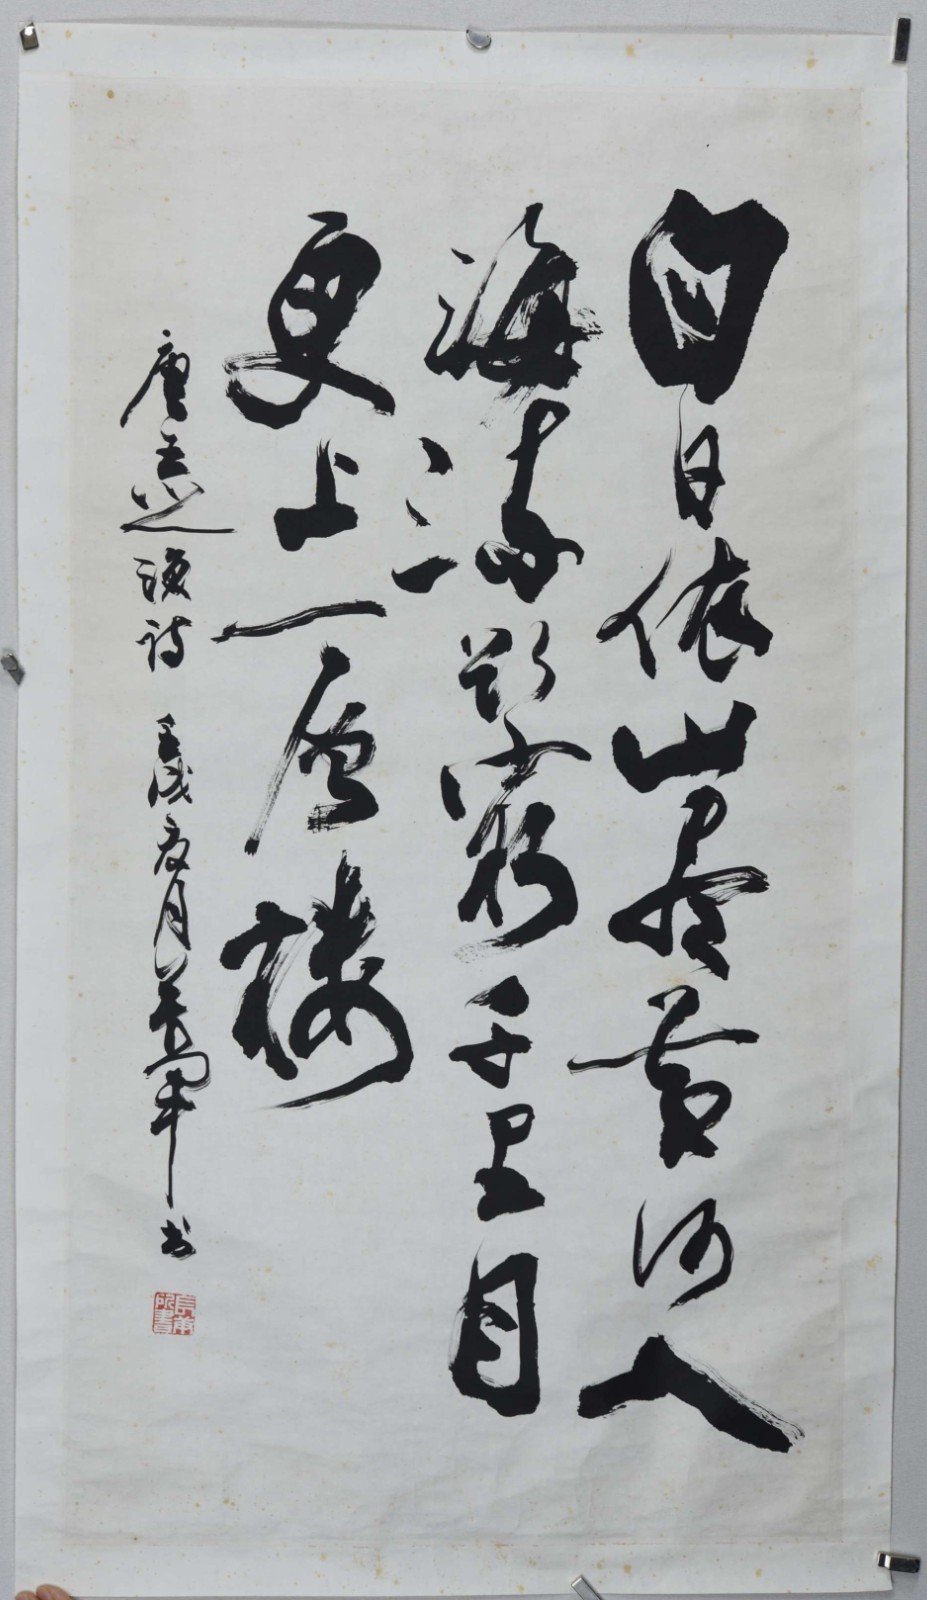 白日依山尽黄河入
海流欲窮千里目
更上一層楼
唐王之涣诗 壬戌夏月 书